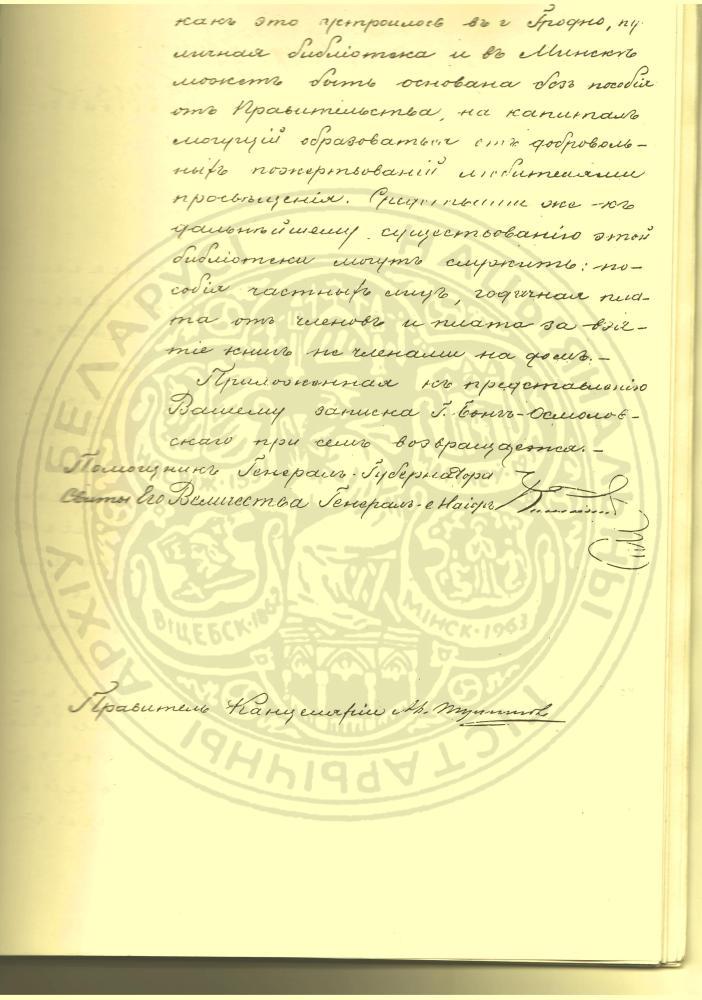 какъ это устроилось въ г Гродно, пу
личная библіотека и въ Минскѣ
можетъ быть основана безъ пособія
отъ Правительства, на капиталъ
могущій образоваться отъ доброволь-
ныхъ пожертвованій любителями
просвѣщенія. Средствами же къ
дальнѣйшему существованію этой
библіотеки могутъ служить: по-
собія частныхъ лицъ, годичная пла-
та отъ членовъ и плата за взя-
тіе книгъ не членами на домъ.-
Приложенная къ представленію
Вашему записка Г. Бонгъ-Осмолов-
скаго при семъ возвращается.-
Помощникъ Генералъ-Губернатора
Свиты Его Величества Генералъ-Маіоръ
Правитель Канцеляріи
АРХІЎ БЕЛАРУСІ
ВІЦЕБСК·1862
МІНСК·1963
ГІСТАРЫЧНЫ